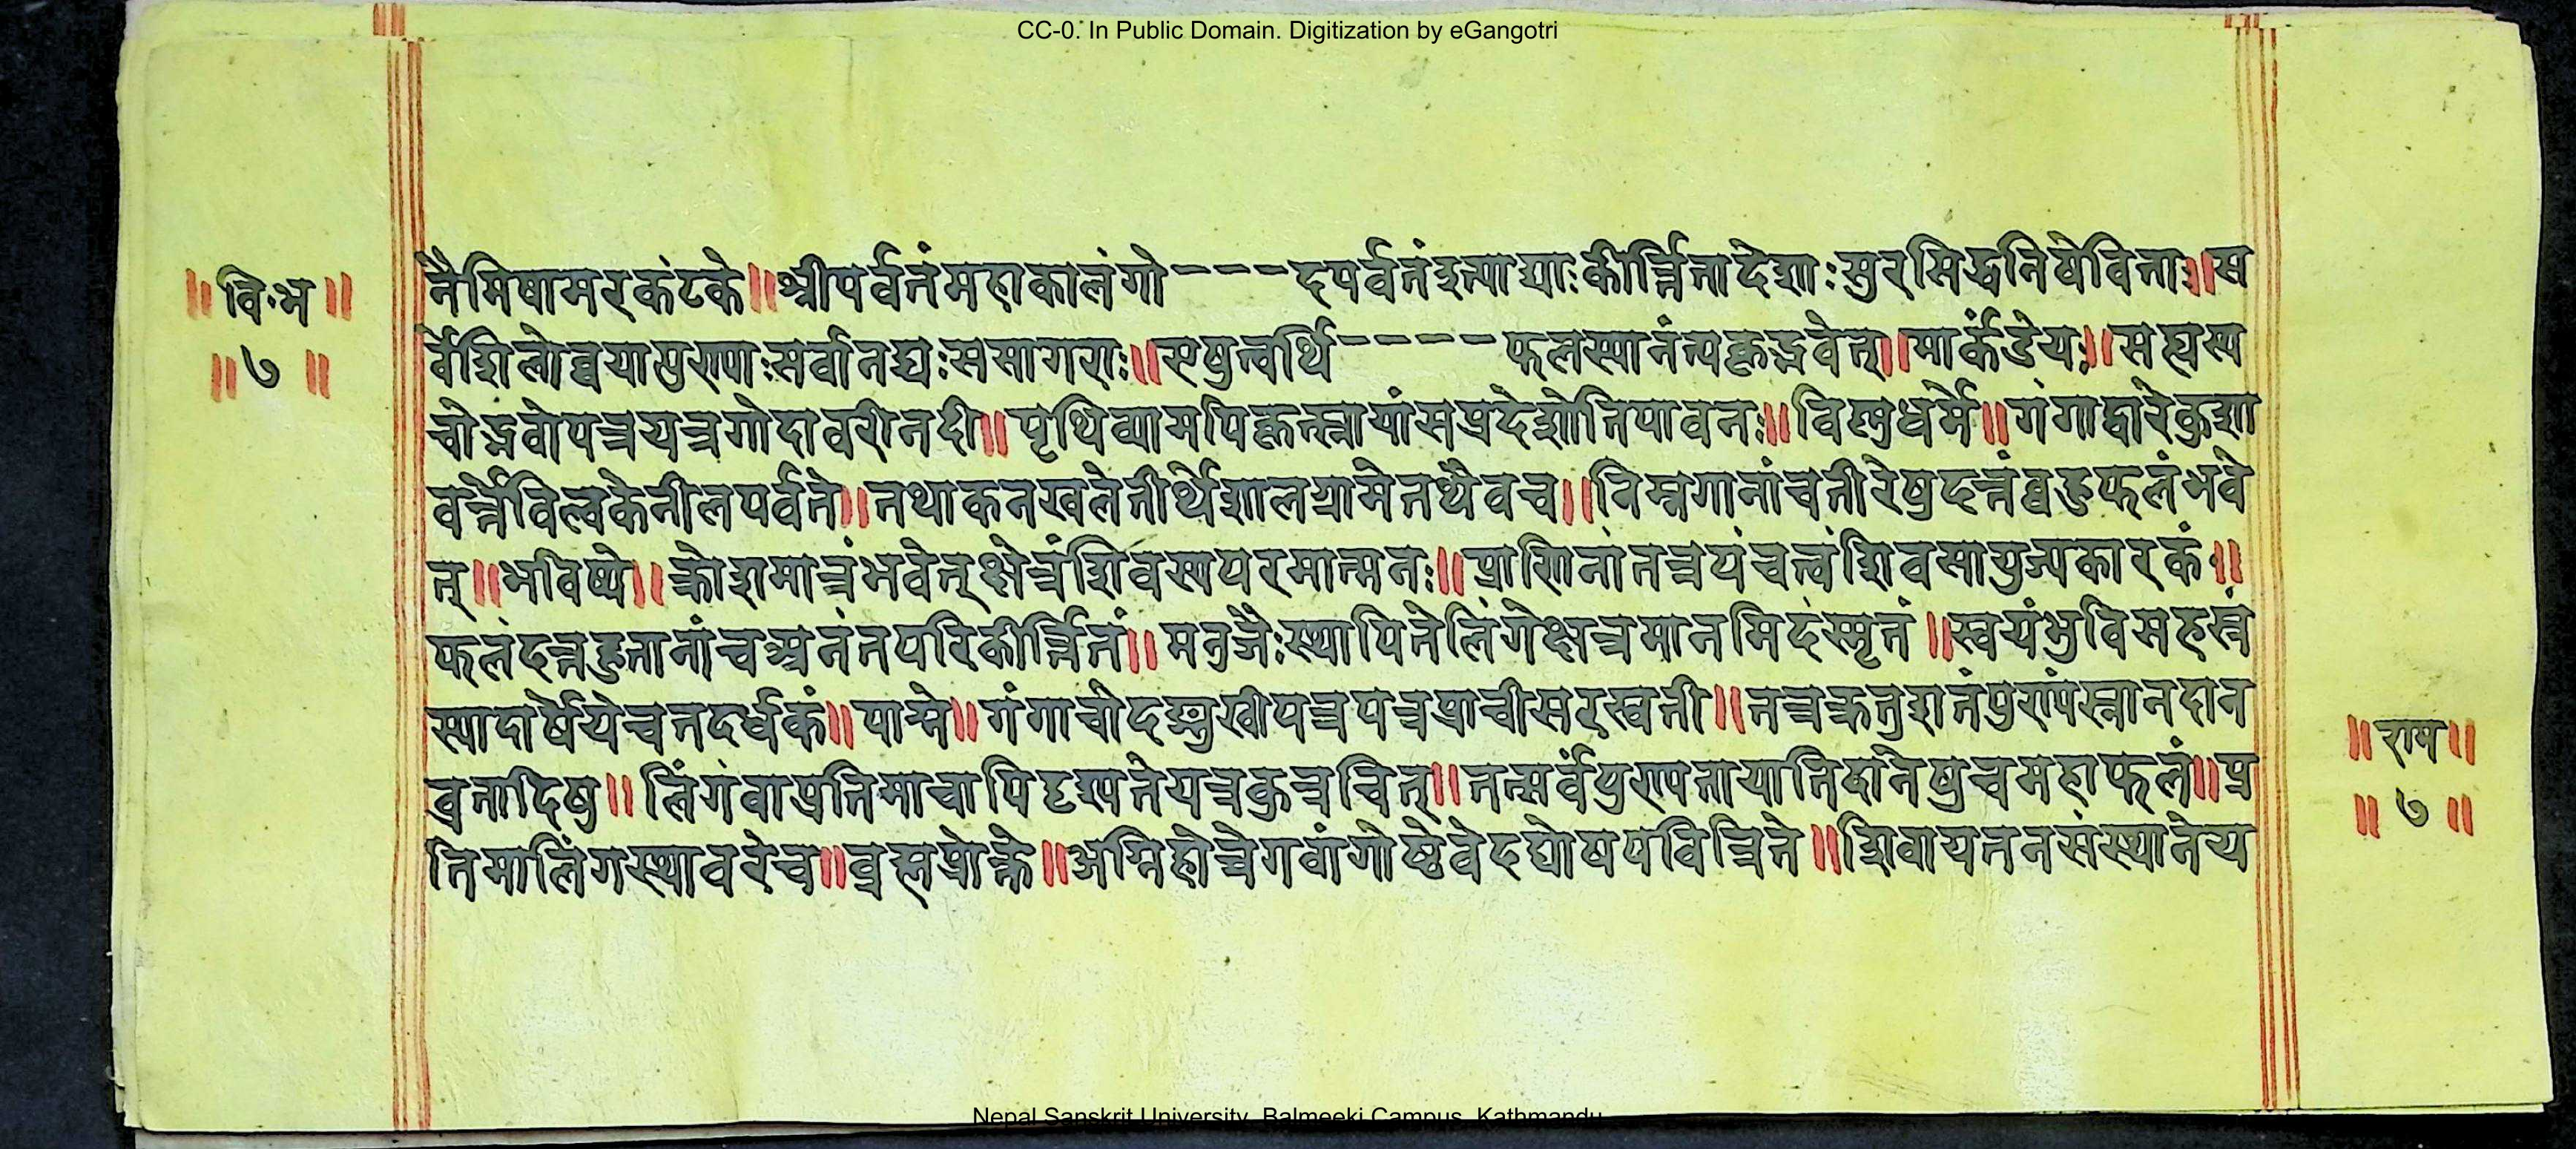 CC-0. In Public Domain. Digitization by eGangotri
॥वि॰भ॥
॥७॥
नैमिषामरकंटके॥श्रीपर्वतंमहाकालंगो----दपर्वतंइत्याद्याःकीर्त्तितादेशाःसुरसिद्धनिषेविताः॥स
र्वेशिलोच्चयापुण्याःसर्वानद्यःससागराः॥एषुत्वर्थि-----फलस्यानंत्यकृद्भवेत्॥मार्कंडेयः॥सह्यस्य
चोद्भवोयत्रयत्रगोदावरीनदी॥पृथिव्यामपिकृत्स्नायांसप्रदेशोतिपावनः॥विष्णुधर्मे॥गंगाद्वारेकुशा
वर्त्तेविल्वकेनीलपर्वते॥तथाकनखलेतीर्थेशालग्रामेतथैवच॥निम्नगानांचतीरेषुदत्तंबहुफलंभवे
त्॥भविष्ये॥क्रोशमात्रंभवेत्क्षेत्रंशिवस्यपरमात्मनः॥प्राणिनांतत्रयंचत्वंशिवसायुज्यकारकं॥
फलंदत्तहुतानांचअनंतपरिकीर्त्तितं॥मनुजैःस्थापितेलिंगेक्षत्रमानमिदंस्मृतं॥स्वयंभुविसहस्रं
स्यादार्षेयेचतदर्धकं॥पाद्मे॥गंगाचोदङ्मुखीयत्रयत्रप्राचीसरस्वती॥तत्रक्रतुशतंपुण्यंस्नानदान
व्रतादिषु॥लिंगंवाप्रतिमाचापिदृश्यतेयत्रकुत्रचित्॥तत्सर्वंपुण्यतायातिदानेषुचमहाफलं॥प्र
तिमालिंगस्थावरेच॥ब्रह्मप्रोक्ते॥अग्निहोत्रेगवांगोष्ठेवेदघोषपवित्रिते॥शिवायतनसंस्थानेच्य
॥राम॥
॥७॥
Nepal Sanskrit University, Balmeeki Campus, Kathmandu